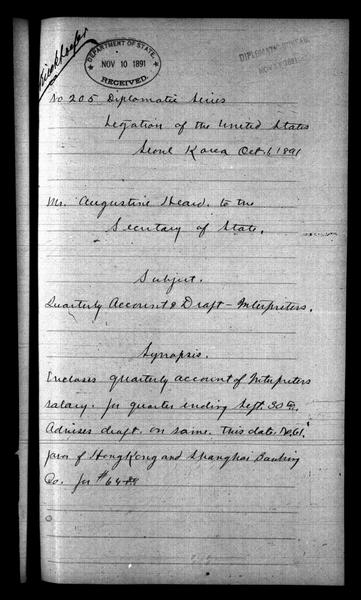 DEPARTMENT OF STATE,
NOV 10 1891
RECEIVED.
No 205 Diplomatic Series
Legation of the United States
Seoul Korea Oct. 1, 1891
Mr. Augustine Heard. to the
Secretary of State.
Subject.
Quarterly Account & Draft - Interpreters.
Synopsis.
Encloses quarterly account of Interpreters
salary. for quarter ending Sept. 30th.
Advises draft on same. this date, No. 61.
favor of HongKong and Shanghai Banking
Co. for